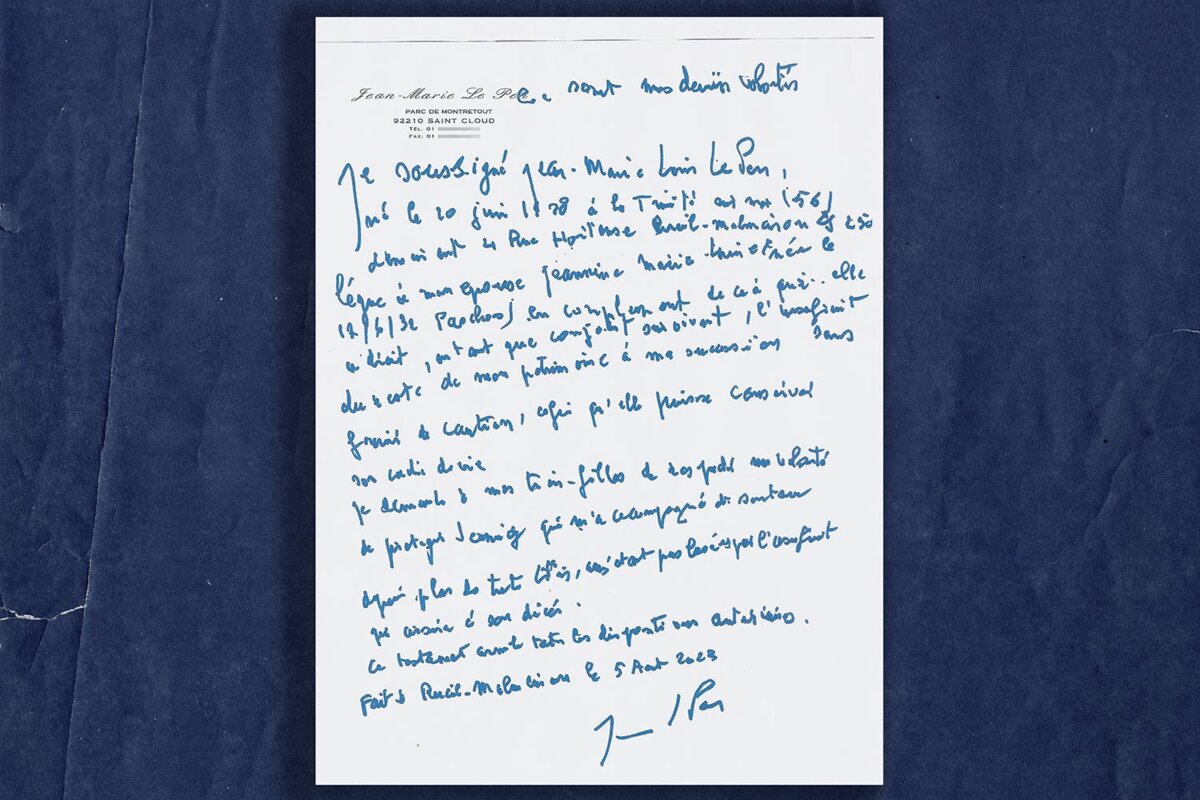 Jean-Marie Le Pen
PARC DE MONTRETOUT
92210 SAINT CLOUD
TÉL. 01
FAX: 01
Ce sont mes dernières volontés
Je soussigné Jean-Marie Louis Le Pen,
né le 20 juin 1928 à la Trinité sur mer (56)
demeurant Rue Hortense Rueil-Malmaison
lègue à mon épouse Jeannine Marie-Louise née le
Paschos) en complément de ce à quoi.. elle
a droit, en tant que conjoint survivant, l'usufruit
du reste de mon patrimoine à ma succession sans
fournir de caution, afin qu'elle puisse conserver
son cadre de vie
Je demande à mes trois filles de respecter ma volonté
de protéger Jeannine qui m'a accompagné et soutenu
depuis plus de trente ans, pas lésées par l'usufruit
qui cessera à son décès.
Ce testament annule toutes les dispositions antérieures.
Fait à Rueil-Malmaison le 5 Août 2023